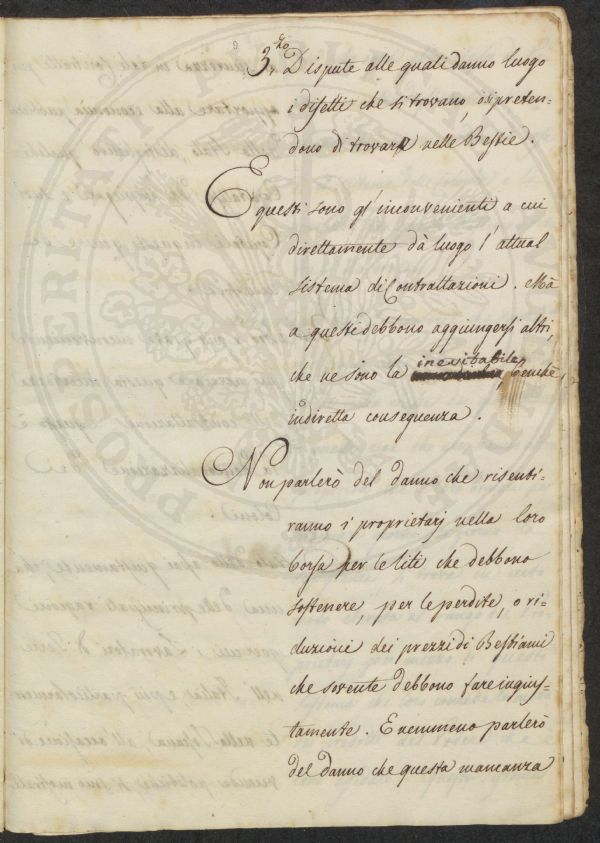 3.zo Dispute alle quali danno luogo
i difetti che si trovano, o si preten-
dono di trovare nelle Bestie.
E questi sono gl'inconvenienti a cui
direttamente dà luogo l'attual
sistema di Contrattazioni. Mà
a questi debbono aggiungersi altri,
che ne sono la inevitabile, benchè,
indiretta conseguenza.
Non parlerò del danno che risenti-
ranno i proprietarj nella loro
borsa per le liti che debbono
sostenere, per le perdite, o ri-
duzioni dei prezzi di Bestiami
che sovente debbono fare ingius-
tamente. E nemmeno parlerò
del danno che questa mancanza
PROSPERITATI